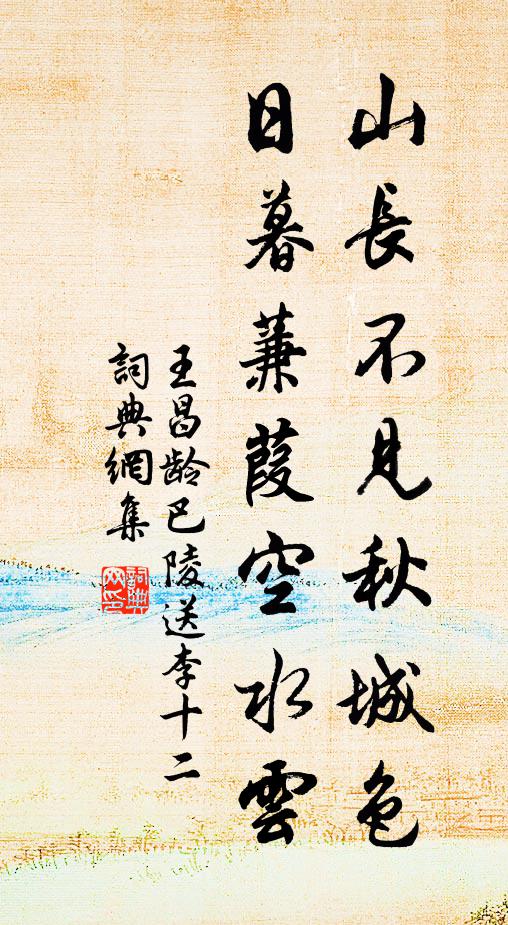 山長不見秋城色
日暮蒹葭空水雲
王昌龄巴陵送李十二
詞典網集